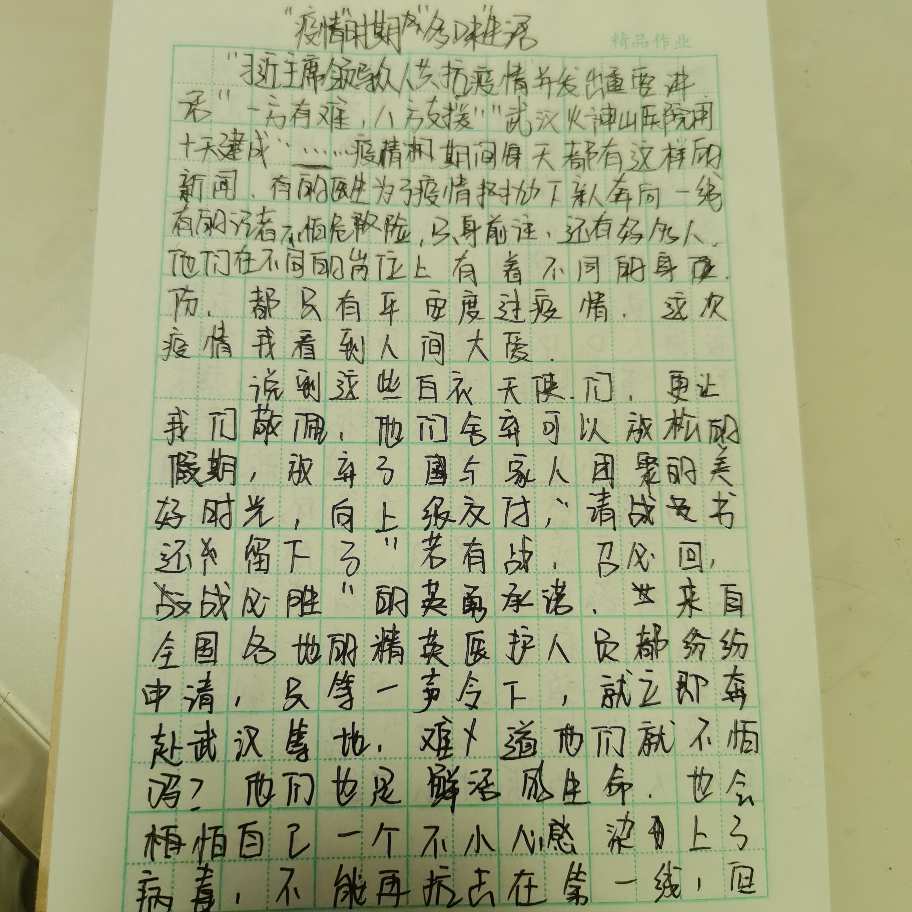 "疫情"时期"多味"生活
精品作业
"习近主席领导众人共抗疫情并发出重要讲
话"一方有难,八方支援""武汉火神山医院用
十天建成"……疫情期间每天都有这样的
新闻.有的医生为了疫情抛下亲人奔向一线
有的记者不怕危险,只身前往,还有好多人.
他们在不同的岗位上有着不同的身
份.都只有平安度过疫情.这次
疫情我看到人间大爱.
说到这些白衣天使们,更让
我们敬佩,他们舍弃可以放松的
假期,放弃了与家人团聚的美
好时光,向上级交付,"请战书
还留下了"若有战,召必回,
战必胜"的英勇承诺.来自
全国各地的精英医护人员都纷纷
申请,只等一声令下,就立即奔
赴武汉等地.难道他们就不怕
吗?他们也是鲜活的生命.也会
怕自己一个不小心感染上了
病毒,不能再抗击在第一线,但